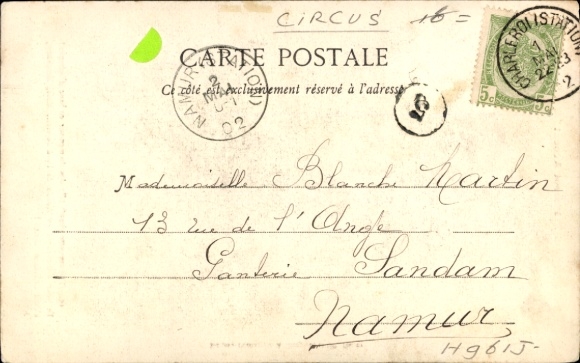 CIRCUS 16=
CARTE POSTALE
Ce côté est exclusivement réservé à l'adresse
NAMUR (STATION)
2
MAI
02
CHARLEROI (STATION)
1
MAI
2
5c 5c
Mademoiselle Blanche Martin
13 rue de l'Ange
Ganterie Sandam
Namur
H961J-